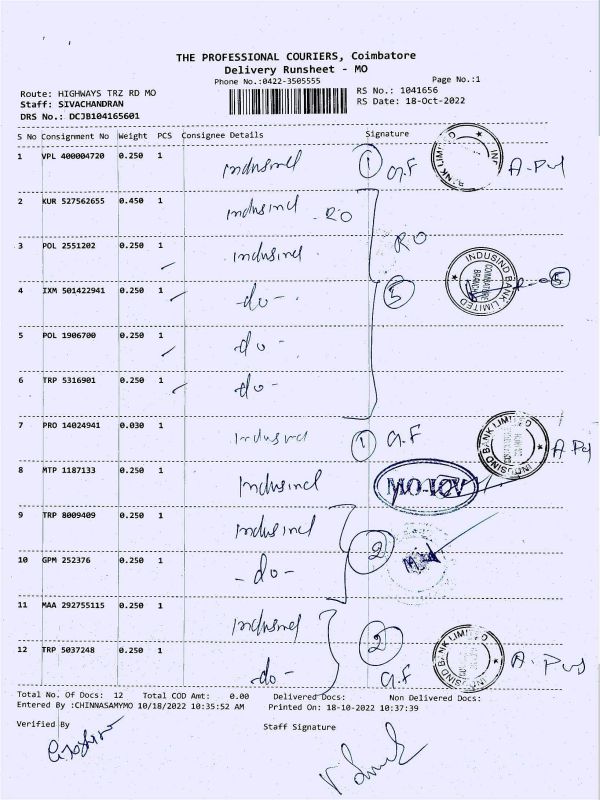 THE PROFESSIONAL COURIERS, Coimbatore
Delivery Runsheet - MO
Phone No.:0422-3505555 Page No.:1
Route: HIGHWAYS TRZ RD MO RS No.: 1041656
Staff: SIVACHANDRAN RS Date: 18-Oct-2022
DRS No.: DCJB104165601
S No Consignment No Weight PCS Consignee Details Signature
1 VPL 400004720 0.250 1 Indusind 1 G.F
2 KUR 527562655 0.450 1 Indusind RO
RO
3 POL 2551202 0.250 1 Indusind
INDUSIND BANK LIMITED COIMBATORE BRANCH
4 IXM 501422941 0.250 1 -do- 5 5
5 POL 1906700 0.250 1 -do-
6 TRP 5316901 0.250 1 -do-
7 PRO 14024941 0.030 1 Indusind 1 G.F INDUSIND BANK LIMITED
8 MTP 1187133 0.250 1 Indusind
9 TRP 8009409 0.250 1 Indusind 2
10 GPM 252376 0.250 1 -do-
11 MAA 292755115 0.250 1 Indusind 2
12 TRP 5037248 0.250 1 -do- G.F
Total No. Of Docs: 12 Total COD Amt: 0.00 Delivered Docs: Non Delivered Docs:
Entered By :CHINNASAMYMO 10/18/2022 10:35:52 AM Printed On: 18-10-2022 10:37:39
Verified By Staff Signature